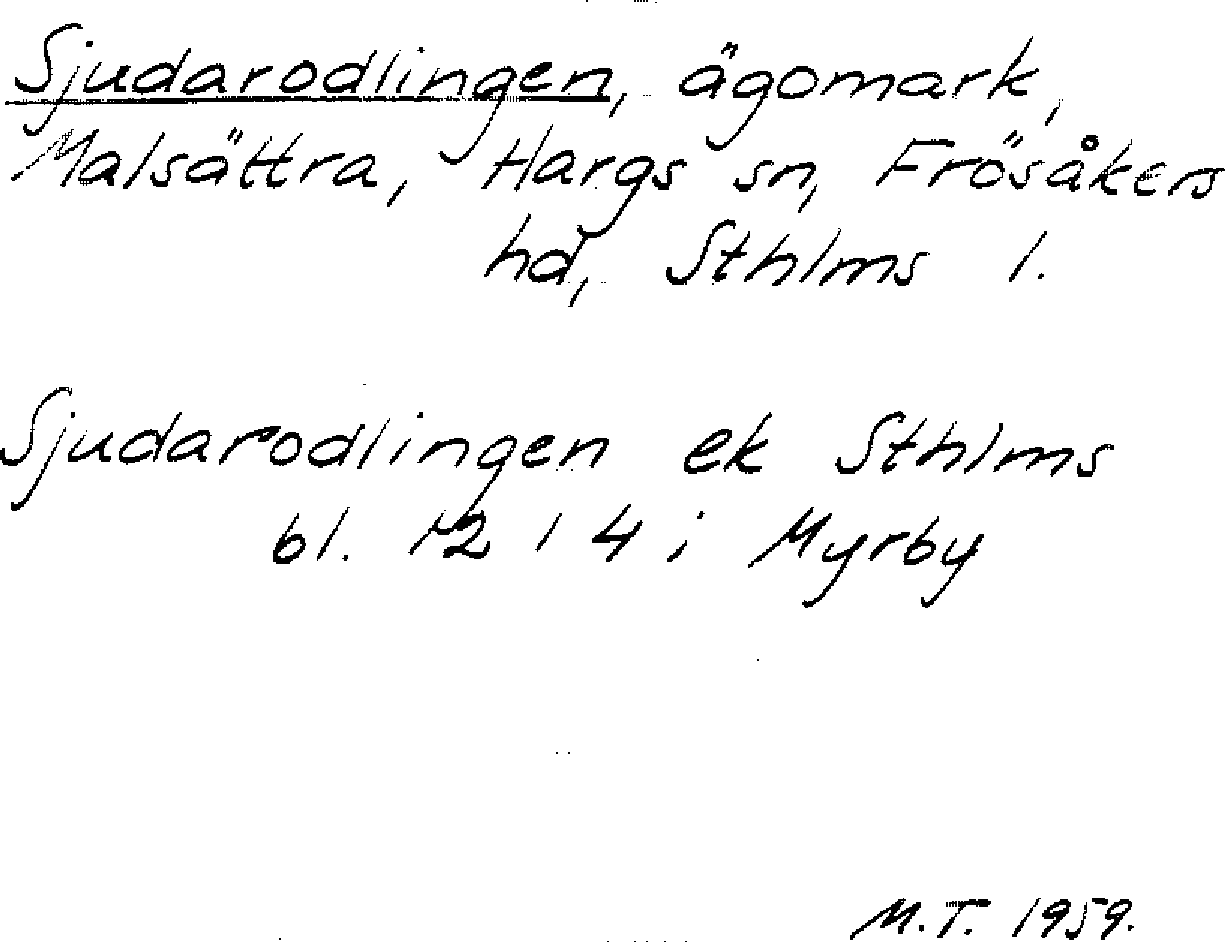 Sjudarodlingen, ägomark,
Malsättra, Hargs sn, Frösåkers
hd, Sthlms l.
Sjudarodlingen ek Sthlms
bl. 12 I 4 i Myrby
M.T. 1959.